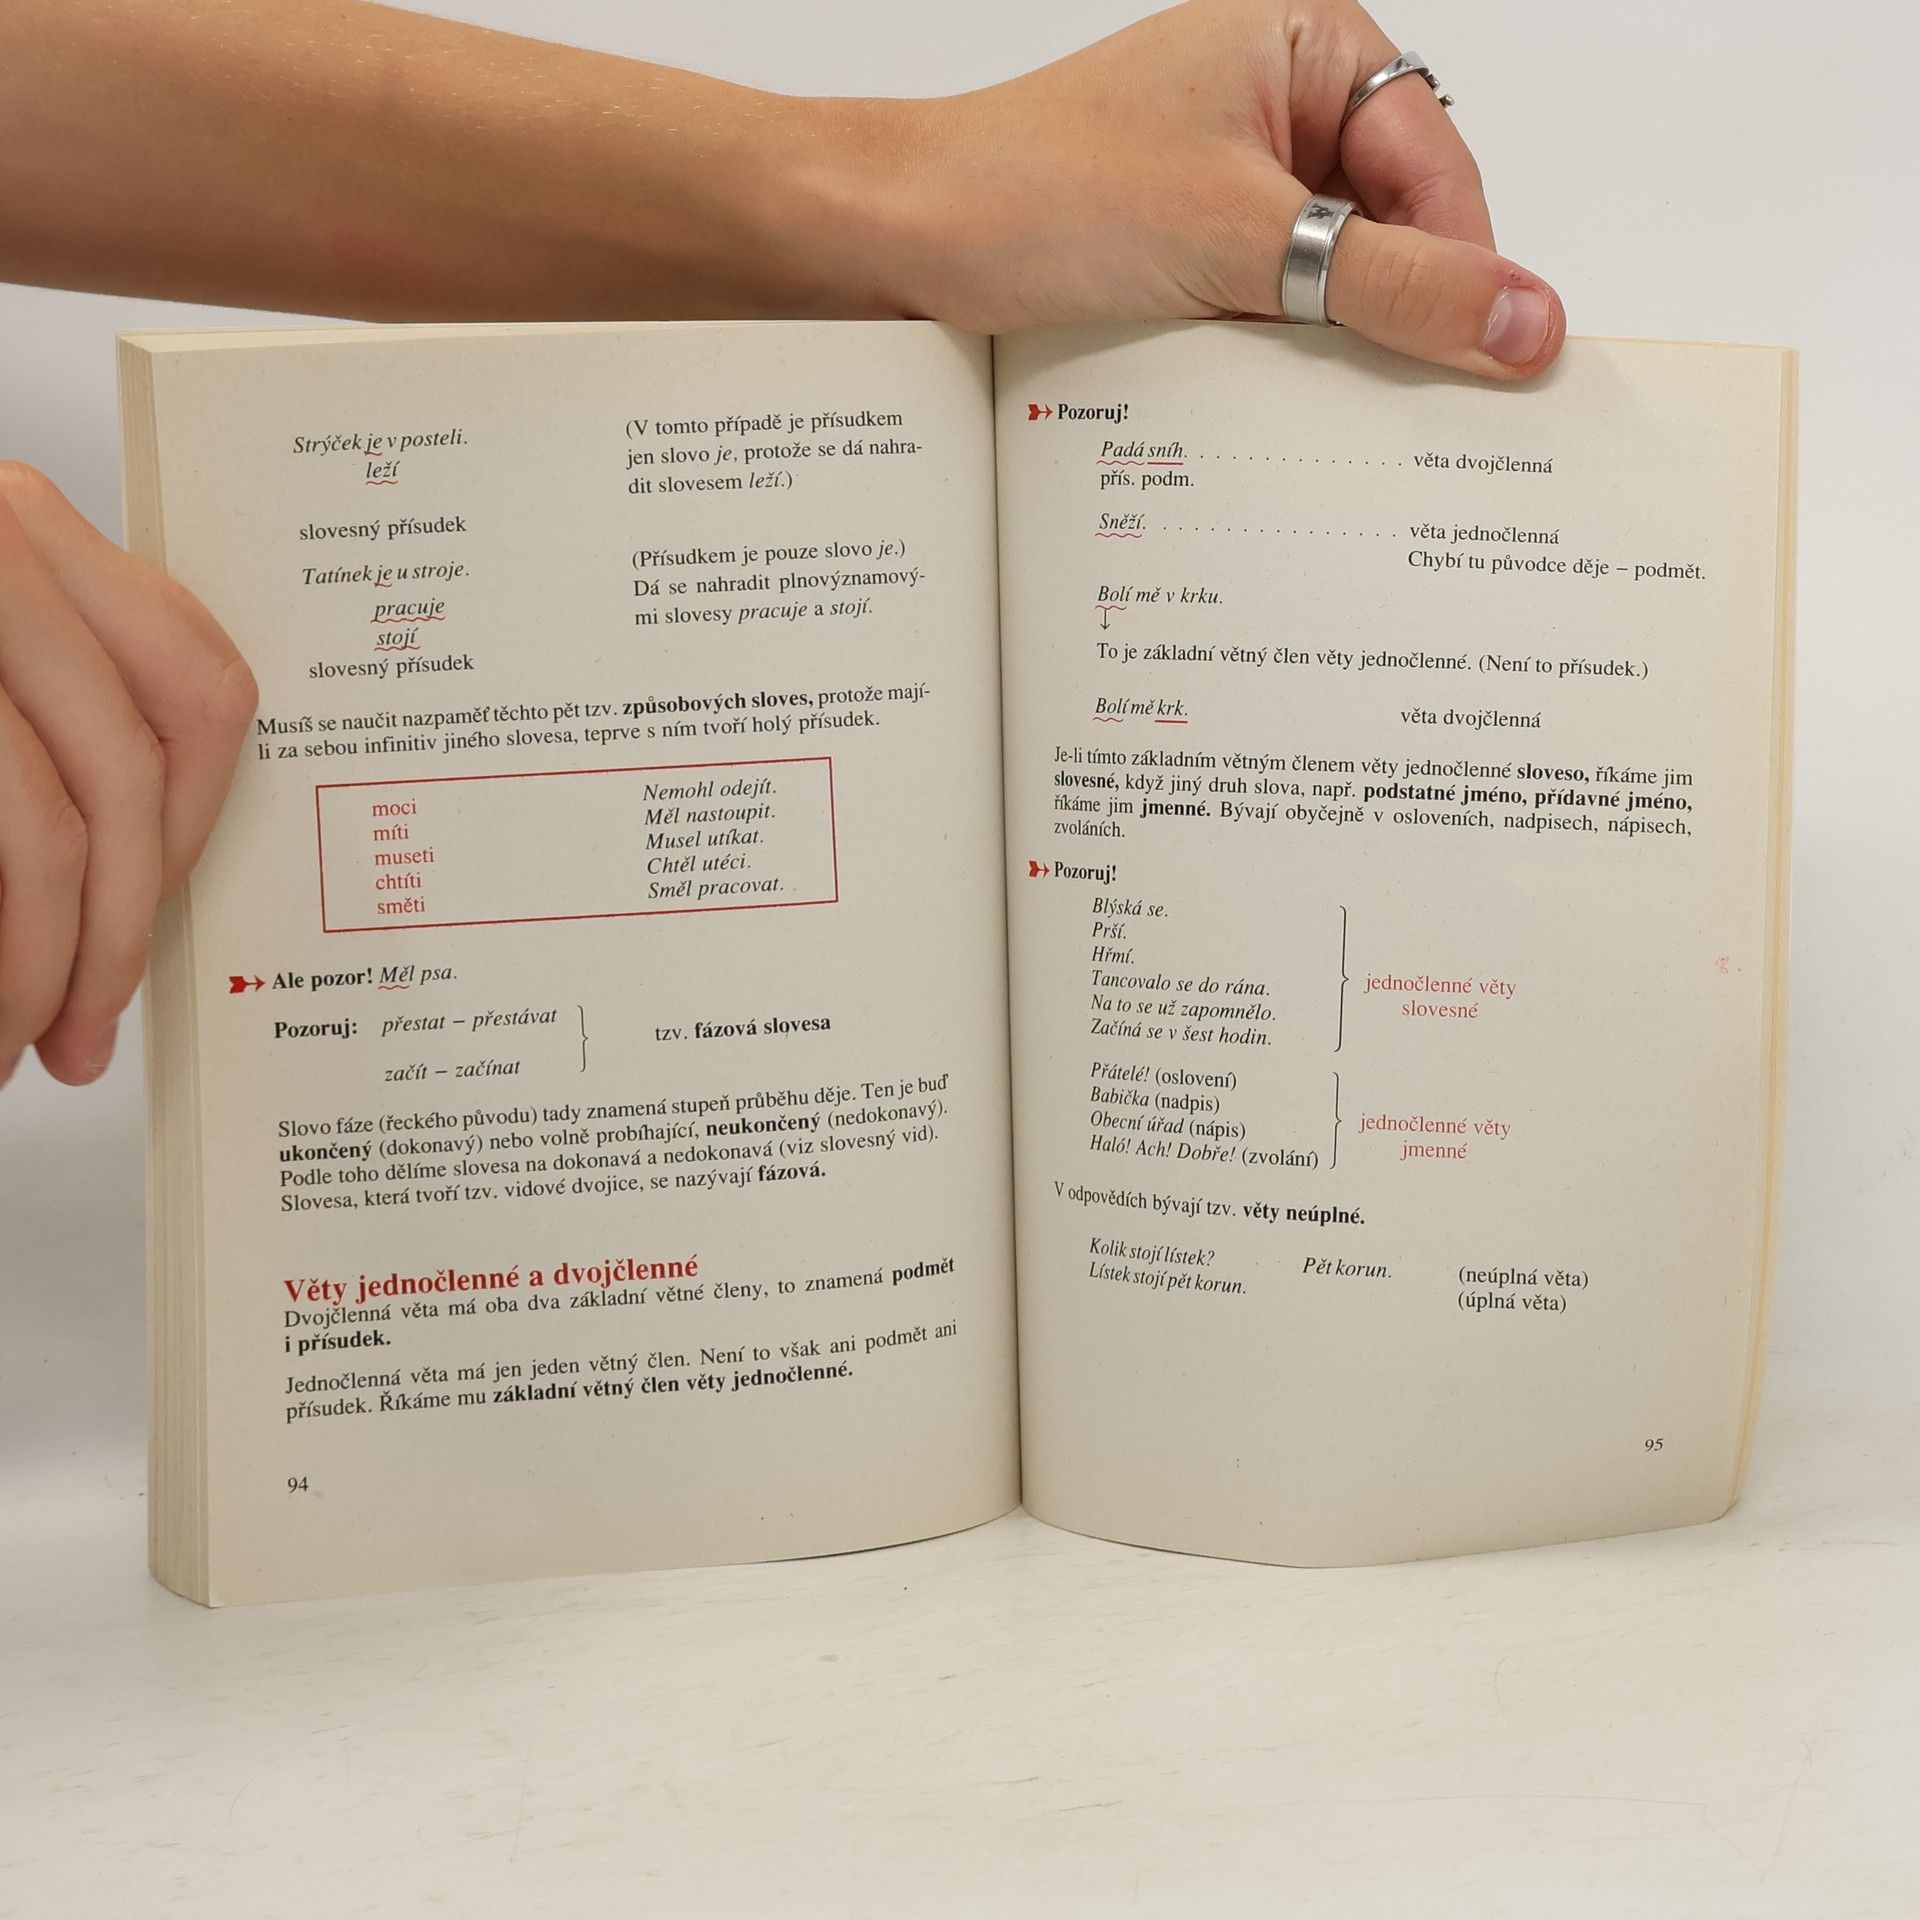 Strýček je v posteli.
leží
(V tomto případě je přísudkem
jen slovo je, protože se dá nahra-
dit slovesem leží.)
slovesný přísudek
Tatínek je u stroje.
pracuje
stojí
slovesný přísudek
(Přísudkem je pouze slovo je.)
Dá se nahradit plnovýznamový-
mi slovesy pracuje a stojí.
Musíš se naučit nazpaměť těchto pět tzv. způsobových sloves, protože mají-
li za sebou infinitiv jiného slovesa, teprve s ním tvoří holý přísudek.
moci Nemohl odejít.
míti Měl nastoupit.
museti Musel utíkat.
chtíti Chtěl utéci.
směti Směl pracovat.
Ale pozor! Měl psa.
Pozoruj: přestat – přestávat
tzv. fázová slovesa
začít – začínat
Slovo fáze (řeckého původu) tady znamená stupeň průběhu děje. Ten je buď
ukončený (dokonavý) nebo volně probíhající, neukončený (nedokonavý).
Podle toho dělíme slovesa na dokonavá a nedokonavá (viz slovesný vid).
Slovesa, která tvoří tzv. vidové dvojice, se nazývají fázová.
Věty jednočlenné a dvojčlenné
Dvojčlenná věta má oba dva základní větné členy, to znamená podmět
i přísudek.
Jednočlenná věta má jen jeden větný člen. Není to však ani podmět ani
přísudek. Říkáme mu základní větný člen věty jednočlenné.
94
Pozoruj!
Padá sníh. . . . . . . . . . . . . . . věta dvojčlenná
přís. podm.
Sněží. . . . . . . . . . . . . . . . věta jednočlenná
Chybí tu původce děje – podmět.
Bolí mě v krku.
To je základní větný člen věty jednočlenné. (Není to přísudek.)
Bolí mě krk. věta dvojčlenná
Je-li tímto základním větným členem věty jednočlenné sloveso, říkáme jim
slovesné, když jiný druh slova, např. podstatné jméno, přídavné jméno,
říkáme jim jmenné. Bývají obyčejně v osloveních, nadpisech, nápisech,
zvoláních.
Pozoruj!
Blýská se.
Prší.
Hřmí.
Tancovalo se do rána.
Na to se už zapomnělo.
Začíná se v šest hodin.
jednočlenné věty
slovesné
Přátelé! (oslovení)
Babička (nadpis)
Obecní úřad (nápis)
Haló! Ach! Dobře! (zvolání)
jednočlenné věty
jmenné
V odpovědích bývají tzv. věty neúplné.
Kolik stojí lístek? Pět korun. (neúplná věta)
Lístek stojí pět korun. (úplná věta)
95